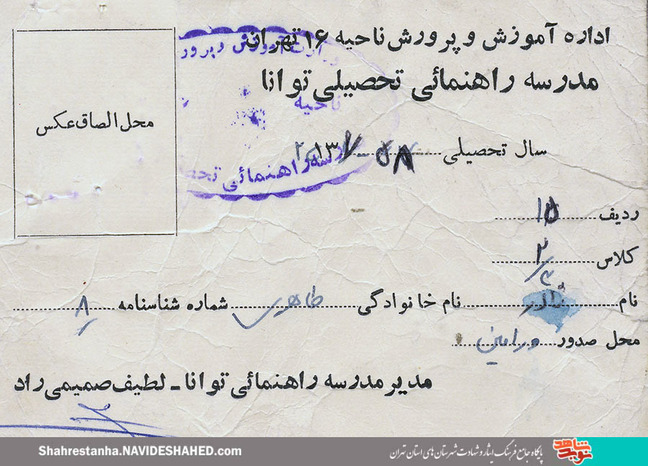 اداره آموزش و پرورش ناحیه ۱۶ تهران
مدرسه راهنمائی تحصیلی توانا
محل الصاق عکس
سال تحصیلی
ردیف ۱۵
کلاس ۲/۴
نام نادر نام خانوادگی طاهری شماره شناسنامه ۸
محل صدور ورامین
مدیر مدرسه راهنمائی توانا ـ لطیف صمیمی راد
ناحیه
مدرسه راهنمائی
Shahrestanha.NAVIDESHAHED.com
پایگاه جامع فرهنگ ایثار و شهادت شهرستان های استان تهران
نوید شاهد